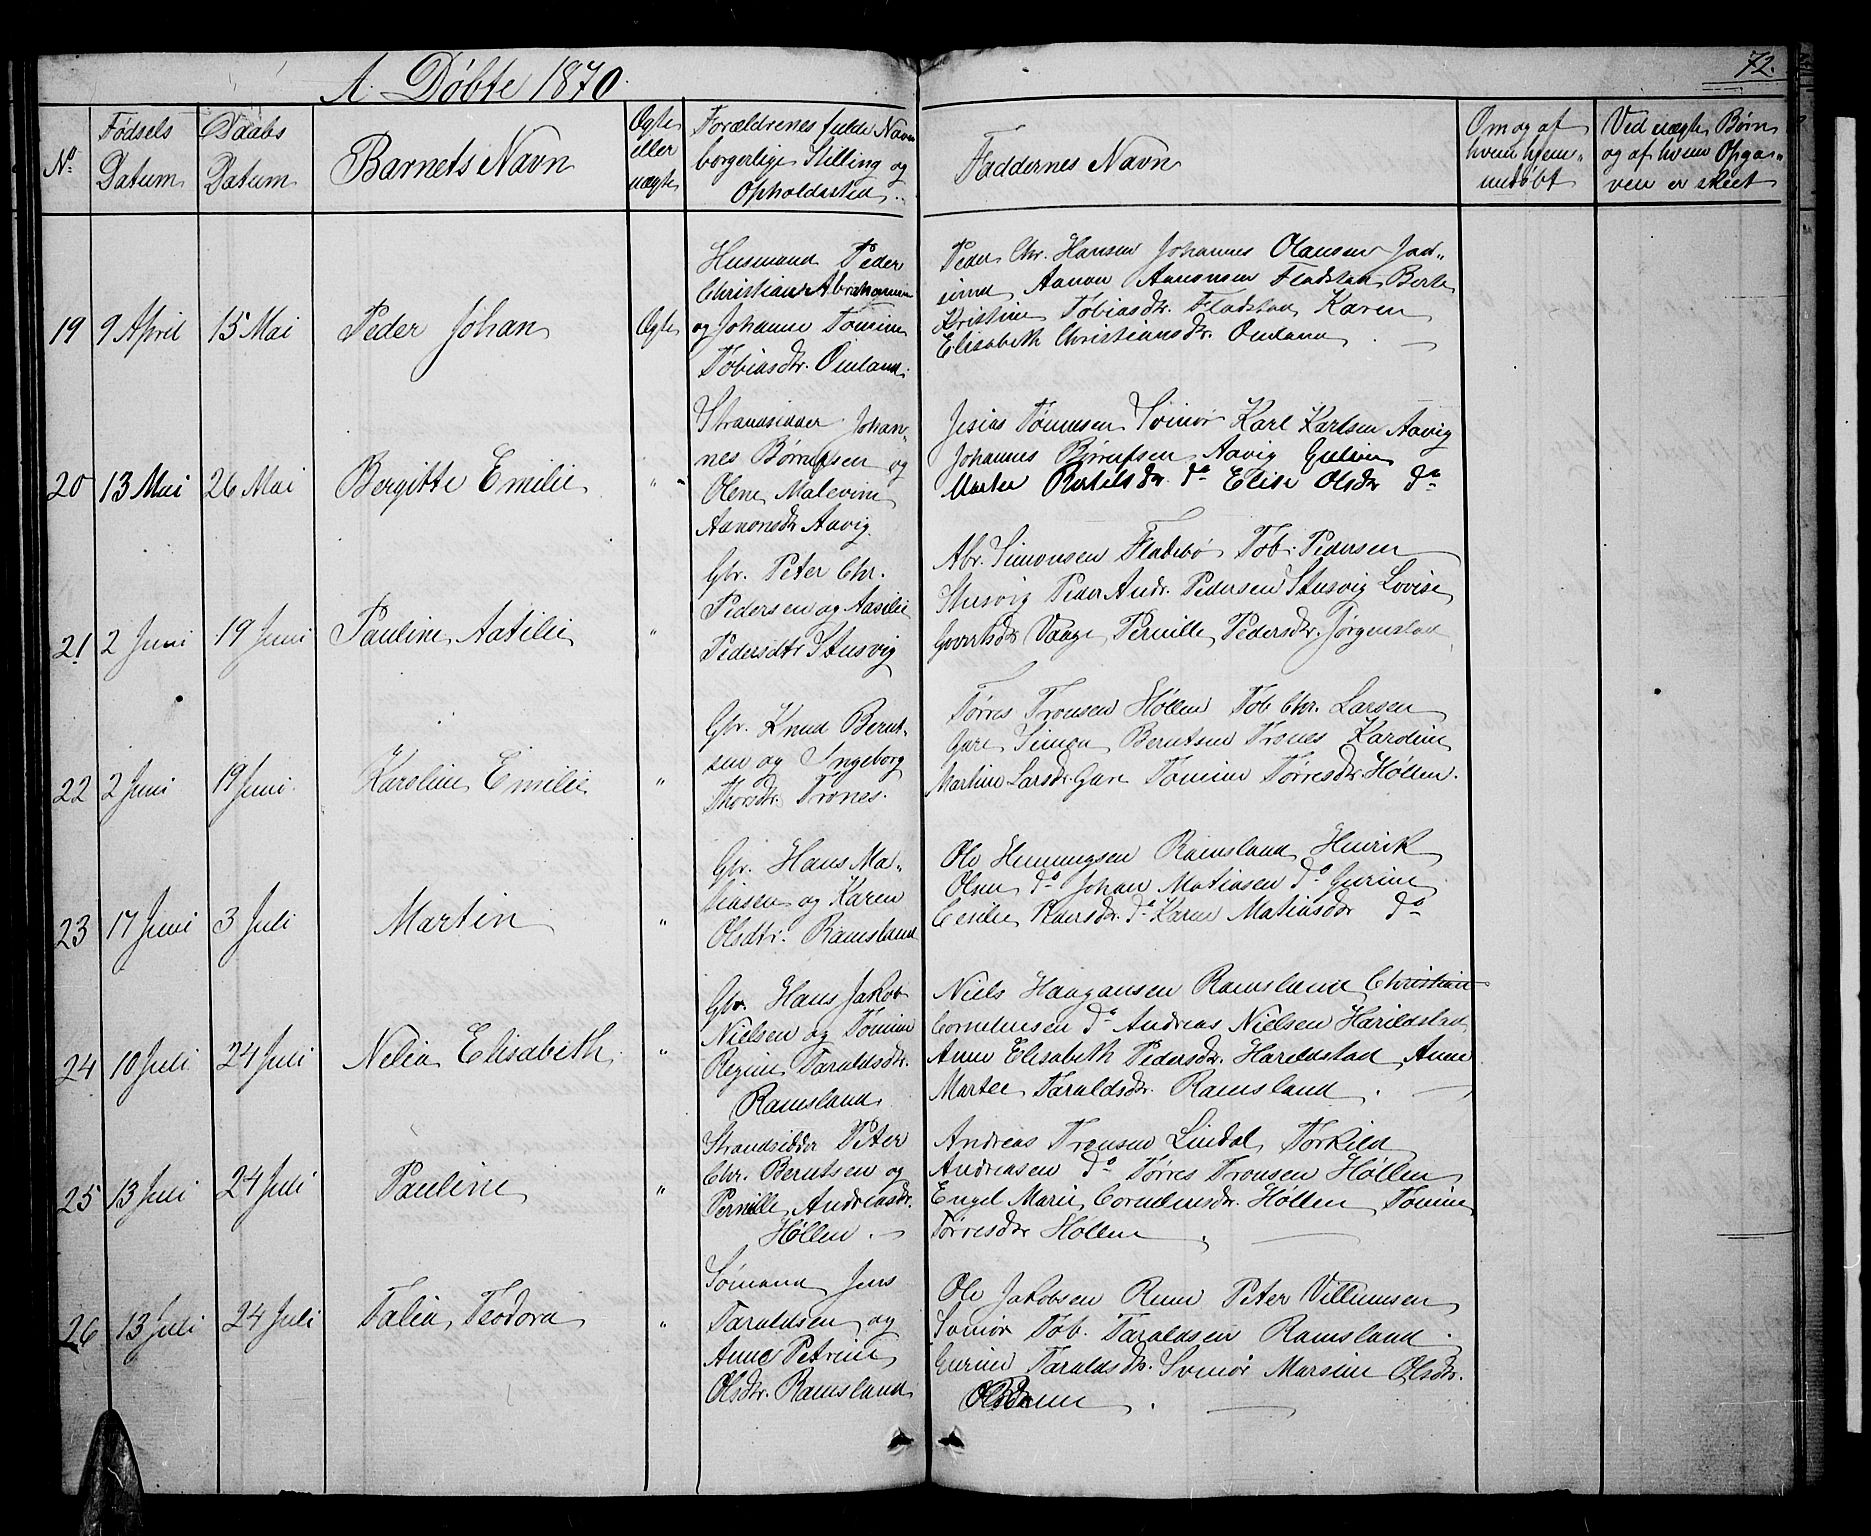 A. Döbte 1870.
72.
No.
Fødsels Datum
Daabs Datum
Barnets Navn
Ægte eller uægte
Forældrenes fulde Navn borgerlige Stilling og Opholdssted
Faddernes Navn
Om og af hvem hjem- medøbt
Ved uægte Børn og af hvem Opga- ven er skeet
19 9 April 15 Mai Peder Johan Ægte
Husmand Peder
Christian Abrahamsen
og Johanne Tomine
Tobiasdtr. Øuland.
Peder Chr. Hansen Johannes Olausen Jad-
Aanon Aanonsen Fladstad Berte
Kristine Tobiasdtr. Fladstad Karen
Elisabeth Christiansdtr. Øuland
20 13 Mai 26 Mai Bergitte Emilie "
Strandsidder Johan-
nes Børufsen og
Olene Malevine
Aanonsdtr Aavig.
Jesias Tønnesen Svinør Karl Karlsen Aavig
Johannes Børufsen Aavig
Marte do Elise Olsdtr do
21 2 Juni 19 Juni Pauline Aatilie "
Gbr. Peter Chr.
Pedersen og Aasilie
Pedersdtr Stusvig
Abr. Simonsen Fladebø Tob. Pedersen
Stusvig Peder Andr. Pedersen Stusvig Lovise
Govertsdtr Vaage Pernille Pedersdtr. Jørgenstad
22 2 Juni 19 Juni. Karoline Emilie "
Gbr. Knud Bernt-
sen og Ingeborg
Thorsdtr. Trones.
Tørres Tronsen Høllen Tob. Chr. Larsen
Gare Simon Berntsen Trones Karoline
Martine Larsdtr. Gare Tomine Tørresdtr Høllen.
23 17 Juni 3 Juli Martin "
Gbr. Hans Ma-
tiasen og Karen
Olsdtr. Ramsland
Ole Henningsen Ramsland Henrik
Olsen do Johan Matiasen do Gurine
Cesilie do Karen Matiasdtr do
24 10 Juli 24 Juli Nelia Elisabeth "
Gbr. Hans Jakob
Nielsen og Tomine
Regine Taraldsdtr.
Ramsland
Niels Haagansen Ramsland Christian
Corneliusen do Andreas Nielsen Harildstad
Anne Elisabeth Pedersdtr. Harildstad Anne
Martee Taraldsdtr. Ramsland.
25 13 Juli 24 Juli Pauline "
Strandsidder Peter
Chr. Berntsen og
Pernille Andreasdtr.
Høllen.
Andreas Tronsen Lindal Torkild
Andreasen do Tørres Tronsen Høllen
Engel Marie Corneliusdtr. Høllen Tomine
Tørresdtr Høllen
26 13 Juli 24 Juli Talia Teodora "
Sømand Jens
Taraldsen og
Anne Petrine
Olsdtr. Ramsland
Ole Jakobsen Rum Peter Villumsen
Svinør Tob. Taraldsen Ramsland.
Gurine Taraldsdtr. Svinør Marsine Olsdtr.